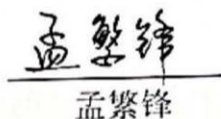 孟繁锋
孟繁锋